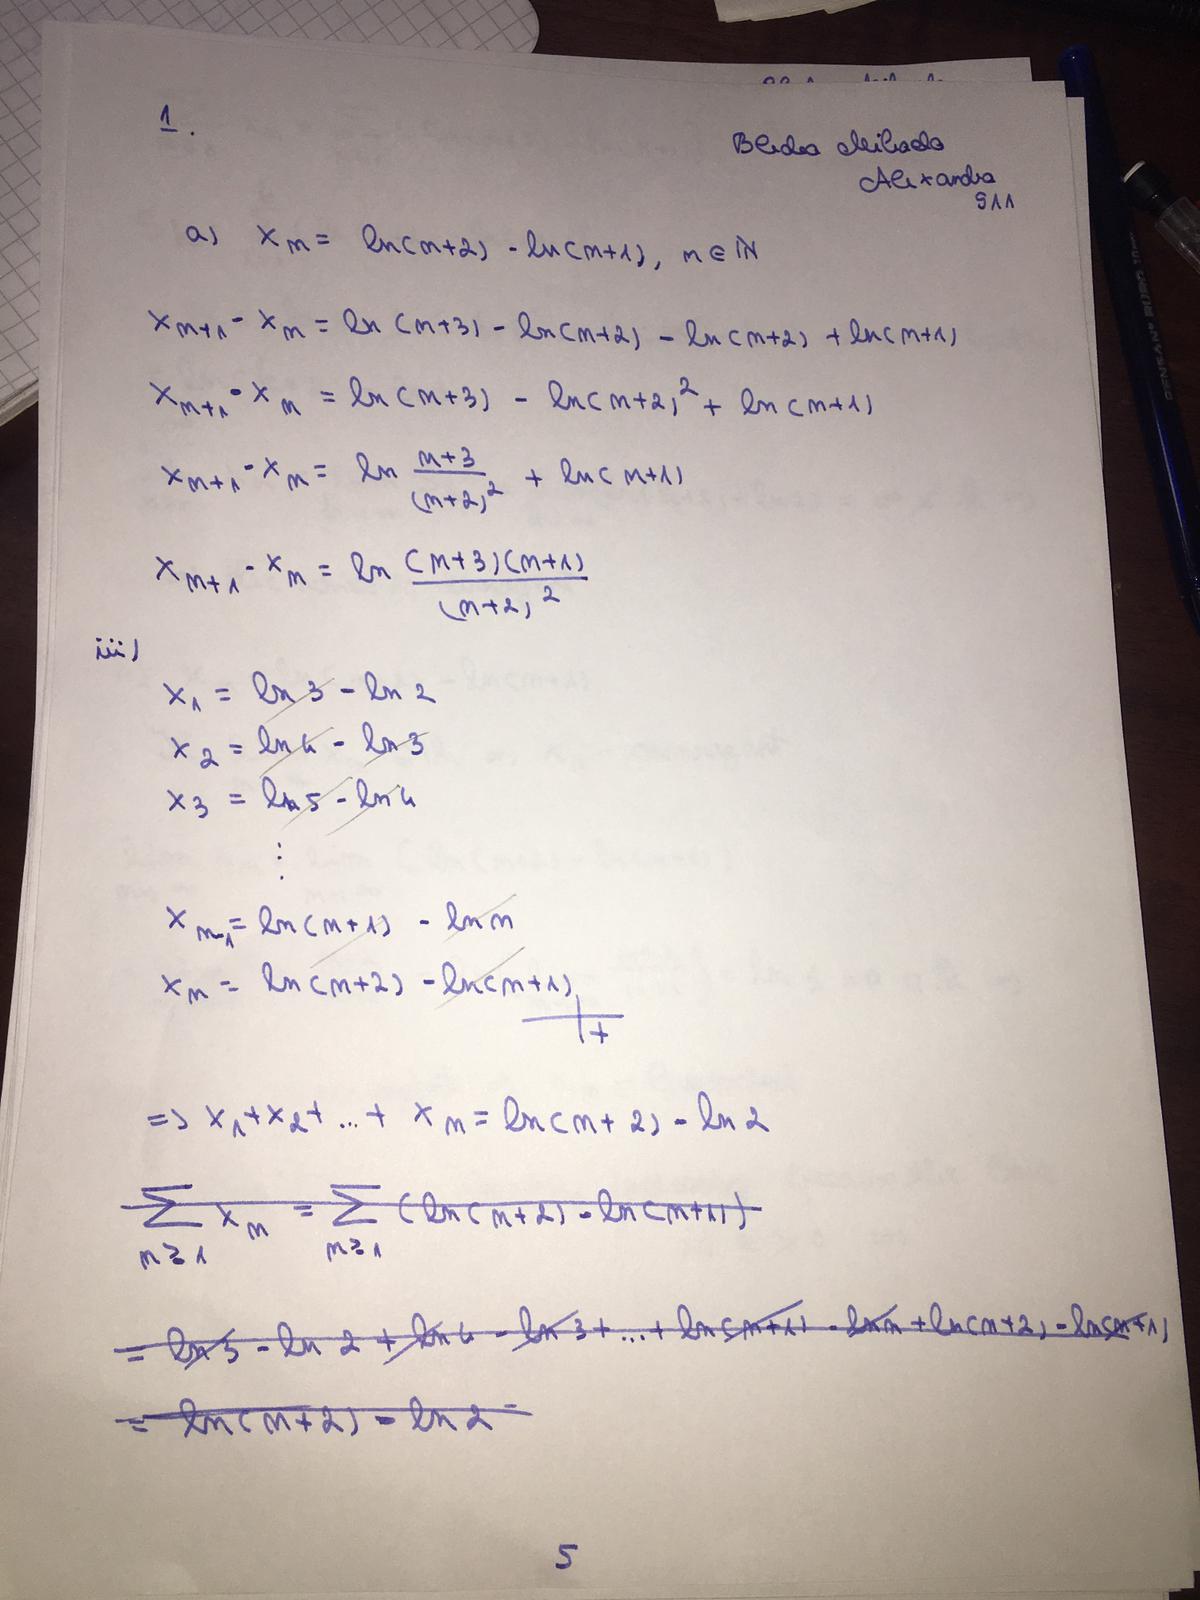 1.
Alexandra
911
a) xn = ln(n+2) - ln(n+1), n ∈ ℕ
xn+1 - xn = ln(n+3) - ln(n+2) - ln(n+2) + ln(n+1)
xn+1 - xn = ln(n+3) - ln(n+2)² + ln(n+1)
xn+1 - xn = ln (n+3)/(n+2)² + ln(n+1)
xn+1 - xn = ln (n+3)(n+1)/(n+2)²
iii)
x1 = ln 3 - ln 2
x2 = ln 4 - ln 3
x3 = ln 5 - ln 4
⋮
xn-1 = ln(n+1) - ln n
xn = ln(n+2) - ln(n+1)
+
=> x1 + x2 + ... + xn = ln(n+2) - ln 2
∑ n≥1 xn = ∑ n≥1 (ln(n+2) - ln(n+1))
= ln 3 - ln 2 + ln 4 - ln 3 + ... + ln(n+1) - ln n + ln(n+2) - ln(n+1)
= ln(n+2) - ln 2
5